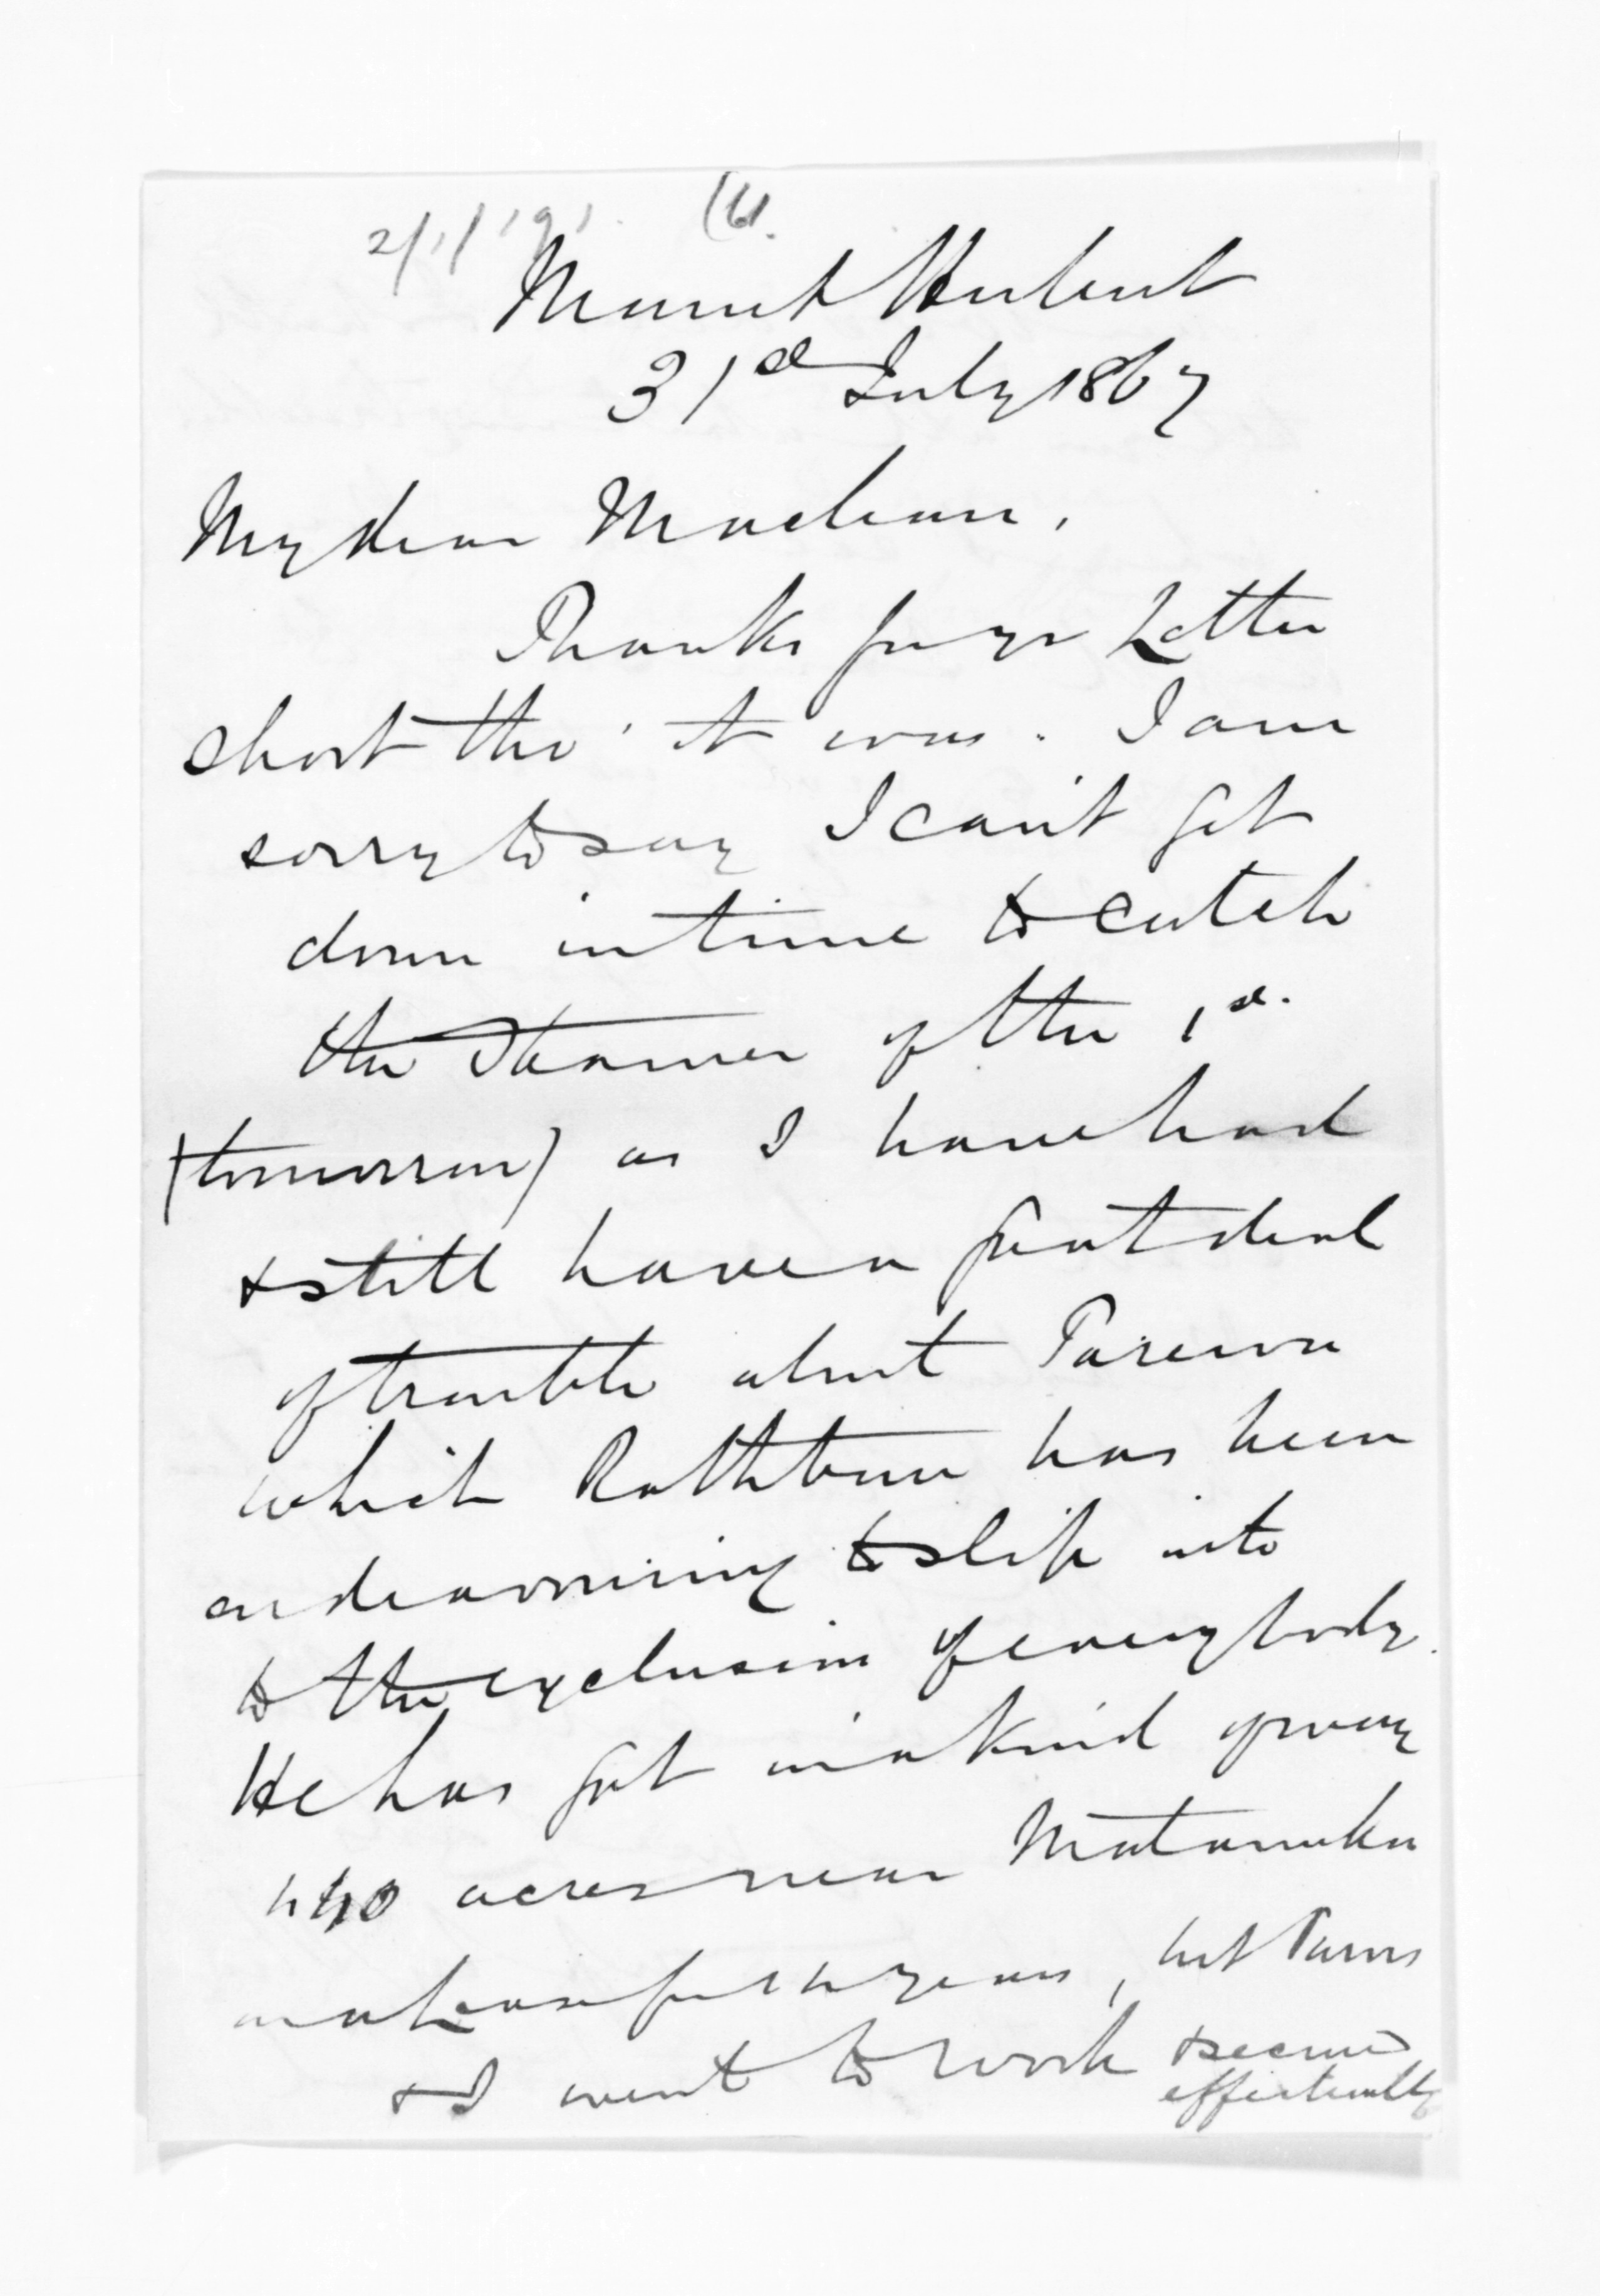 Mount Herbert
31st July 1867
My dear Maclean,
Thanks for yr Letter
short tho' it was. I am
sorry to say I can't get
down in time to catch
the Steamer of the 1st.
(tomorrow) as I have had
& still have a great deal
of trouble about Parewa
which Rathbone has been
endeavouring to slip into
to the exclusion of everybody.
He has got in a kind of way
440 acres near
on a Lease for years, but
& I went to work & secured
effectually